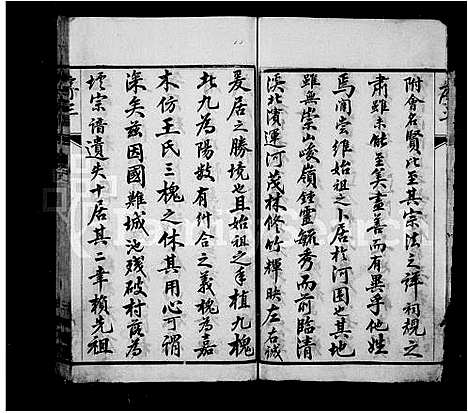 附會名賢比至其宗法之詳祠規之
肅雖未能至美盡善而有異乎他姓
焉聞雲維始祖之卜居於河圍也其地
雖無崇山峻嶺鍾靈毓秀而前臨清
溪北濱運河茂林修竹輝映左右誠
爰居之勝境也且始祖之手植九槐
此九為陽故有糾合之義槐為嘉
木仿王氏三槐之休其用心可謂
深矣茲因國難城池殘破村莊為
墟宗譜遺失十居其二幸賴先祖
FamilySearch